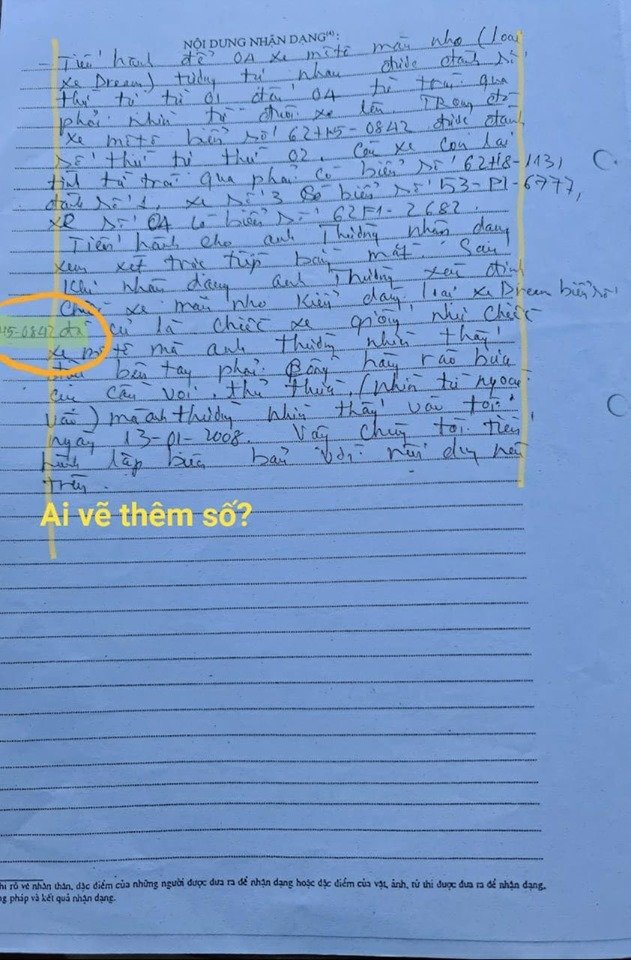 NỘI DUNG NHẬN DẠNG⁽⁴⁾:
Tiến hành để 04 xe môtô màu nho (loại
xe Dream) tương tự nhau được đánh số
thứ tự từ 01 đến 04 từ trái qua
phải nhìn từ đuôi xe lên. Trong đó
xe môtô biển số 62H5-0842 được đánh
số thứ tự thứ 02, còn xe còn lại
tính từ trái qua phải có biển số 62H8-1131
đánh số 1, xe số 3 có biển số 53-P1-6777,
xe số 04 có biển số 62F1-2682
Tiến hành cho anh Thường nhận dạng
xem xét trực tiếp bằng mắt. Sau
khi nhận dạng anh Thường xác định
chiếc xe màu nho kiểu dáng loại xe Dream biển số
H5-0842 là chiếc xe giống như chiếc
xe mô tô mà anh Thường nhìn thấy
bên tay phải hàng rào bưu
cục Cầu Voi, Thủ Thừa, (nhìn từ ngoài
vào) mà anh Thường nhìn thấy vào tối
ngày 13-01-2008. Vậy chúng tôi tiến
hành lập biên bản với nội dung như
trên.
Ai vẽ thêm số?
hi rõ về nhân thân, đặc điểm của những người được đưa ra để nhận dạng hoặc đặc điểm của vật, ảnh, tử thi được đưa ra để nhận dạng,
ng pháp và kết quả nhận dạng.